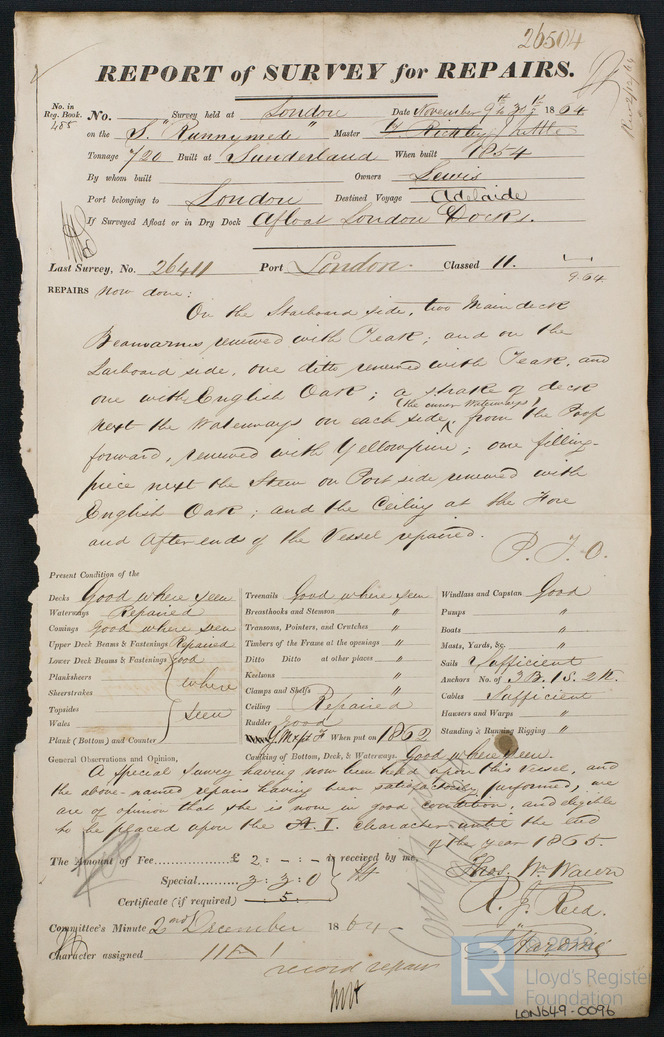 26504
REPORT of SURVEY for REPAIRS.
No. in Reg. Book. 485 No. Survey held at London Date November 9th & 30th 1864
on the S. "Runnymede" Master
Tonnage 720 Built at Sunderland When built 1854
By whom built Owners Lewis
Port belonging to London Destined Voyage Adelaide
If Surveyed Afloat or in Dry Dock Afloat London Docks.
Last Survey, No. 26411 Port London. Classed 11. 9.64
REPAIRS now done:
On the Starboard side, two Main deck
Beamarms renewed with Teak; and on the
Larboard side, one ditto renewed with Teak, and
one with English Oak; a strake of deck
(the inner Waterways)
next the Waterways on each side, from the Poop
forward, renewed with Yellowpine; one filling-
piece next the Stem on Port side renewed with
English Oak; and the Ceiling at the Fore
and After ends of the Vessel repaired.
P.T.O.
Present Condition of the
Decks Good where seen Treenails Good where seen Windlass and Capstan Good
Waterways Repaired Breasthooks and Stemson " Pumps "
Comings Good where seen Transoms, Pointers, and Crutches " Boats "
Upper Deck Beams & Fastenings Repaired Timbers of the Frame at the openings " Masts, Yards, &c. "
Lower Deck Beams & Fastenings Good Ditto Ditto at other places " Sails Sufficient
Planksheers where Keelsons " Anchors No. of 3B. 1S. 2K.
Sheerstrakes Clamps and Shelfs " Cables Sufficient
Topsides seen Ceiling Repaired Hawsers and Warps "
Wales Rudder Good Standing & Running Rigging "
Plank (Bottom) and Counter When put on 1862
General Observations and Opinion, Caulking of Bottom, Deck, & Waterways. Good where seen.
A special Survey having now been held upon this Vessel, and
the above-named repairs having been satisfactorily performed, we
are of opinion that she is now in good condition, and eligible
to be placed upon the A.1. character until the end
of the year 1865.
The Amount of Fee............... £ 2: - : - is received by me,
Special......... 3: 3: 0
Certificate (if required) .. : 5 :
Thos. Wm. Wawn
R. J. Reed.
Committee's Minute 2nd December 1864
Character assigned 11 A 1
record repairs
© 2019
LR
Lloyd's Register
Foundation
LON649-0096